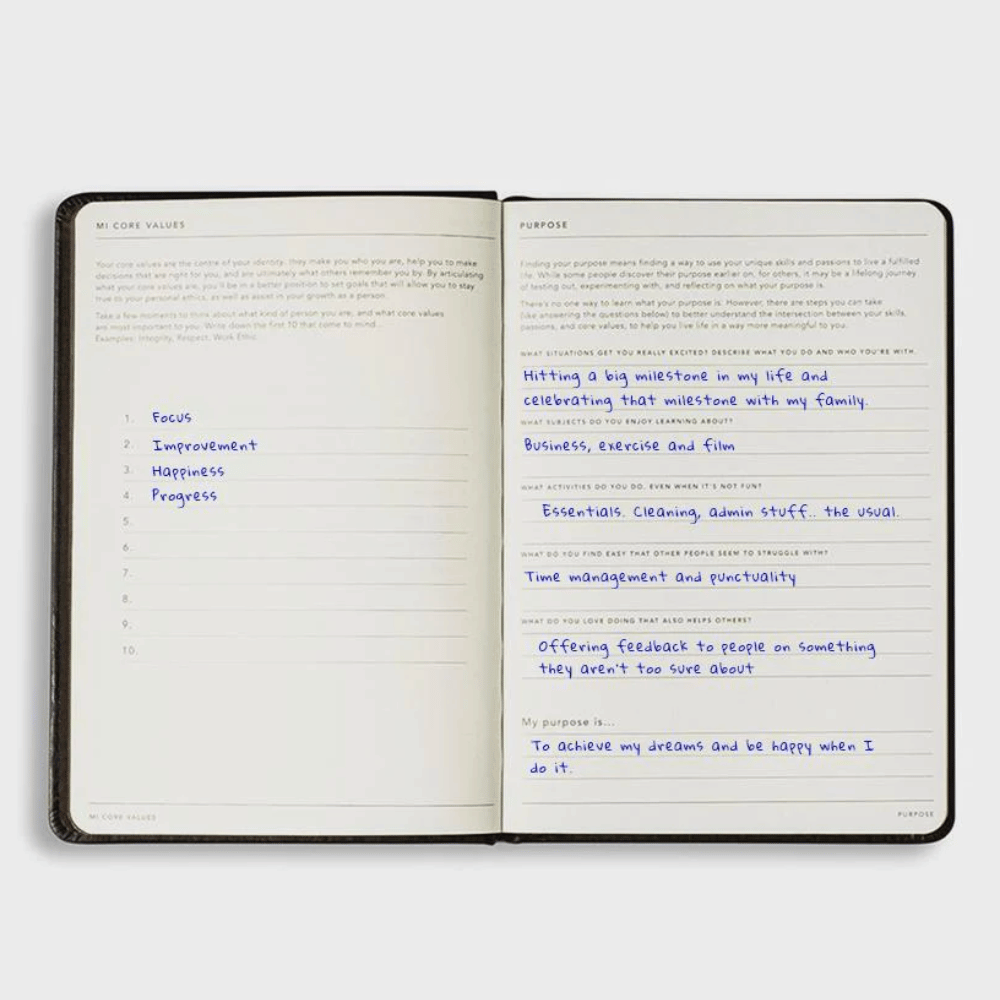 MI CORE VALUES
Your core values are the centre of your identity, they make you who you are, help you to make
decisions that are right for you, and are ultimately what others remember you by. By articulating
what your core values are, you'll be in a better position to set goals that will allow you to stay
true to your personal ethics, as well as assist in your growth as a person.
Take a few moments to think about what kind of person you are, and what core values
are most important to you. Write down the first 10 that come to mind...
Examples: Integrity, Respect, Work Ethic
1. Focus
2. Improvement
3. Happiness
4. Progress
5.
6.
7.
8.
9.
10.
MI CORE VALUES
PURPOSE
Finding your purpose means finding a way to use your unique skills and passions to live a fulfilled
life. While some people discover their purpose earlier on, for others, it may be a lifelong journey
of testing out, experimenting with, and reflecting on what your purpose is.
There's no one way to learn what your purpose is. However, there are steps you can take
(like answering the questions below) to better understand the intersection between your skills,
passions, and core values, to help you live life in a way more meaningful to you.
WHAT SITUATIONS GET YOU REALLY EXCITED? DESCRIBE WHAT YOU DO AND WHO YOU'RE WITH.
Hitting a big milestone in my life and
celebrating that milestone with my family.
WHAT SUBJECTS DO YOU ENJOY LEARNING ABOUT?
Business, exercise and film
WHAT ACTIVITIES DO YOU DO, EVEN WHEN IT'S NOT FUN?
Essentials. Cleaning, admin stuff.. the usual.
WHAT DO YOU FIND EASY THAT OTHER PEOPLE SEEM TO STRUGGLE WITH?
Time management and punctuality
WHAT DO YOU LOVE DOING THAT ALSO HELPS OTHERS?
Offering feedback to people on something
they aren't too sure about
My purpose is...
To achieve my dreams and be happy when I
do it.
PURPOSE